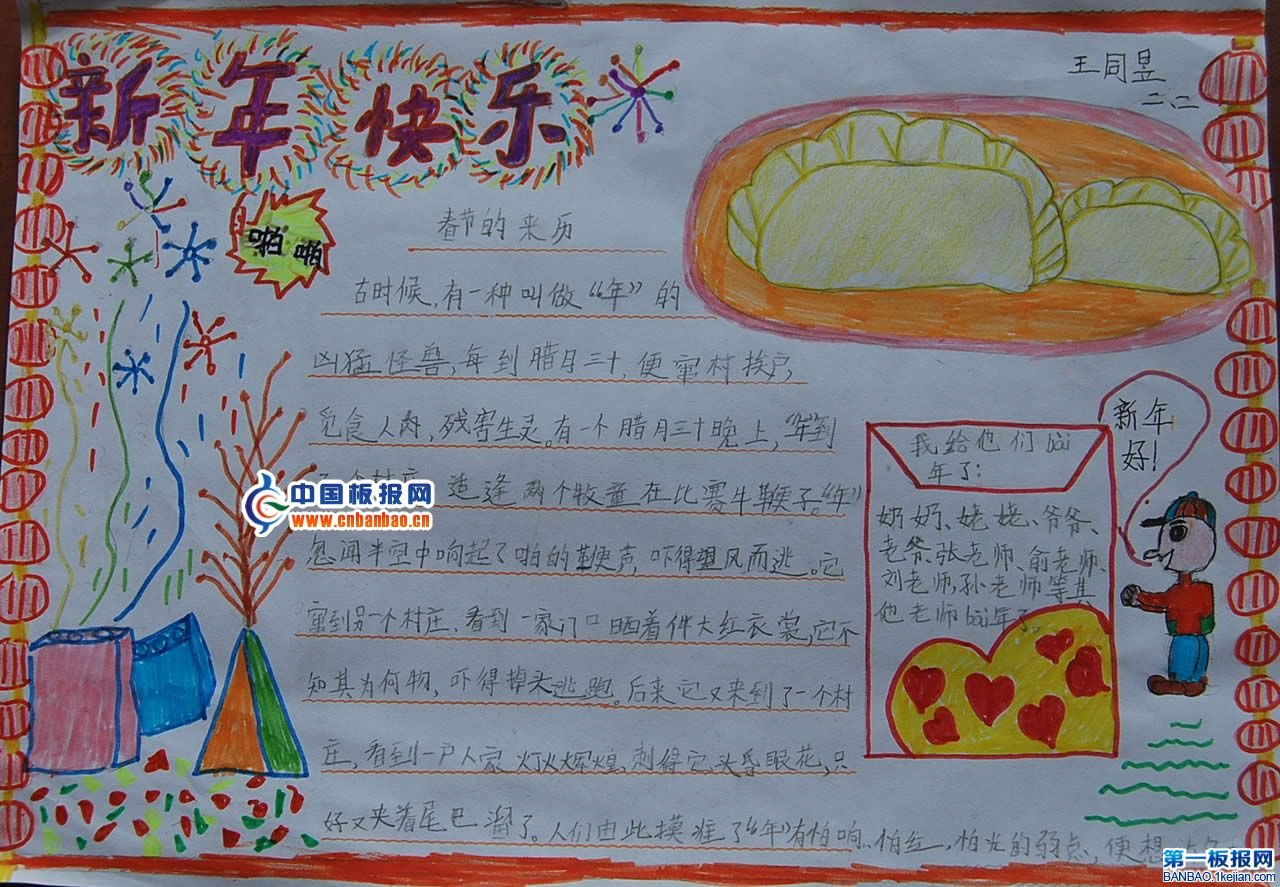 新年快乐
王同昱
二.二
春节的来历
古时候,有一种叫做“年”的
凶猛怪兽,每到腊月三十,便窜村挨户,
觅食人肉,残害生灵。有一个腊月三十晚上,“年”到
适逢两个牧童在比赛牛鞭子。“年”
忽闻半空中响起了啪的鞭声,吓得望风而逃。它
窜到另一个村庄,看到一家门口晒着件大红衣裳,它不
知其为何物,吓得掉头逃跑。后来它又来到了一个村
庄,看到一户人家灯火辉煌,刺得它头昏眼花,只
好又夹着尾巴溜了。人们由此摸准了“年”有怕响,怕红,怕光的弱点,便想
我给他们bài
年了:
奶奶、姥姥、爷爷、
老爷、张老师、俞老师、
刘老师,孙老师等其
他老师bài年了。
新年
好!
中国板报网
www.cnbanbao.cn
第一板报网
BANBAO.1kejian.com